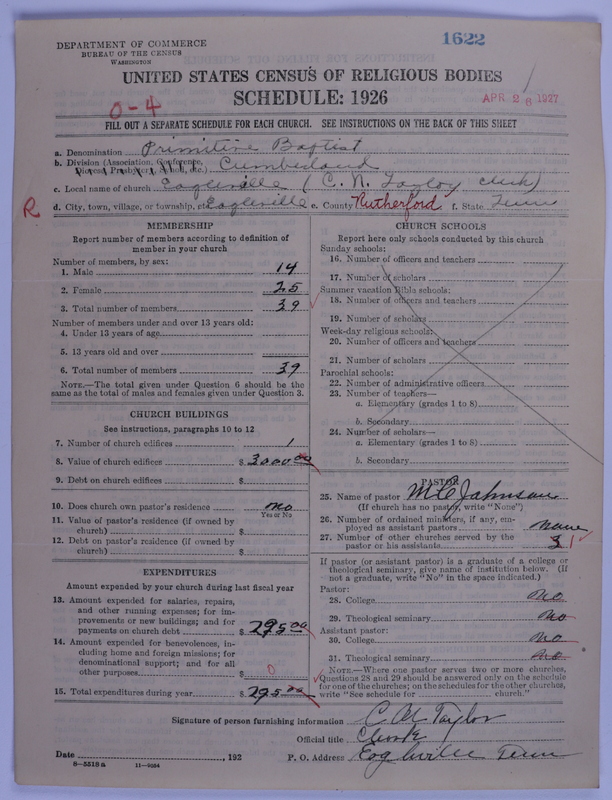 DEPARTMENT OF COMMERCE
BUREAU OF THE CENSUS
WASHINGTON
1622
UNITED STATES CENSUS OF RELIGIOUS BODIES
SCHEDULE: 1926
0-4
APR 26 1927
FILL OUT A SEPARATE SCHEDULE FOR EACH CHURCH. SEE INSTRUCTIONS ON THE BACK OF THIS SHEET
a. Denomination Primitive Baptist
b. Division (Association, Conference, Diocese, Presbytery, Synod, etc.) Cumberland
c. Local name of church Eagleville (C. N. Taylor Clerk)
R d. City, town, village, or township, etc. Eagleville e. County Rutherford f. State Tenn
MEMBERSHIP
Report number of members according to definition of
member in your church
Number of members, by sex:
1. Male 14
2. Female 25
3. Total number of members 39
Number of members under and over 13 years old:
4. Under 13 years of age
5. 13 years old and over
6. Total number of members 39
NOTE.—The total given under Question 6 should be the
same as the total of males and females given under Question 3.
CHURCH BUILDINGS
See instructions, paragraphs 10 to 12
7. Number of church edifices 1
8. Value of church edifices $ 3000.00
9. Debt on church edifices $
10. Does church own pastor's residence no
Yes or No
11. Value of pastor's residence (if owned by
church) $
12. Debt on pastor's residence (if owned by
church) $
EXPENDITURES
Amount expended by your church during last fiscal year
13. Amount expended for salaries, repairs,
and other running expenses; for im-
provements or new buildings; and for
payments on church debt $ 295.00
14. Amount expended for benevolences, in-
cluding home and foreign missions; for
denominational support; and for all
other purposes $ 0
15. Total expenditures during year $ 295.00
CHURCH SCHOOLS
Report here only schools conducted by this church
Sunday schools:
16. Number of officers and teachers
17. Number of scholars
Summer vacation Bible schools:
18. Number of officers and teachers
19. Number of scholars
Week-day religious schools:
20. Number of officers and teachers
21. Number of scholars
Parochial schools:
22. Number of administrative officers
23. Number of teachers—
a. Elementary (grades 1 to 8)
b. Secondary
24. Number of scholars—
a. Elementary (grades 1 to 8)
b. Secondary
PASTOR
25. Name of pastor M C Johnson
(If church has no pastor, write "None")
26. Number of ordained ministers, if any, em-
ployed as assistant pastors none
27. Number of other churches served by the
pastor or his assistants 3 1
If pastor (or assistant pastor) is a graduate of a college or
theological seminary, give name of institution below. (If
not a graduate, write "No" in the space indicated.)
Pastor:
28. College no
29. Theological seminary no
Assistant pastor:
30. College no
31. Theological seminary no
NOTE.—Where one pastor serves two or more churches,
Questions 28 and 29 should be answered only on the schedule
for one of the churches; on the schedules for the other churches,
write "See schedule for church."
Signature of person furnishing information C N Taylor
Official title Clerk
Date , 192
P. O. Address Eagleville Tenn
8-5518a 11-9084